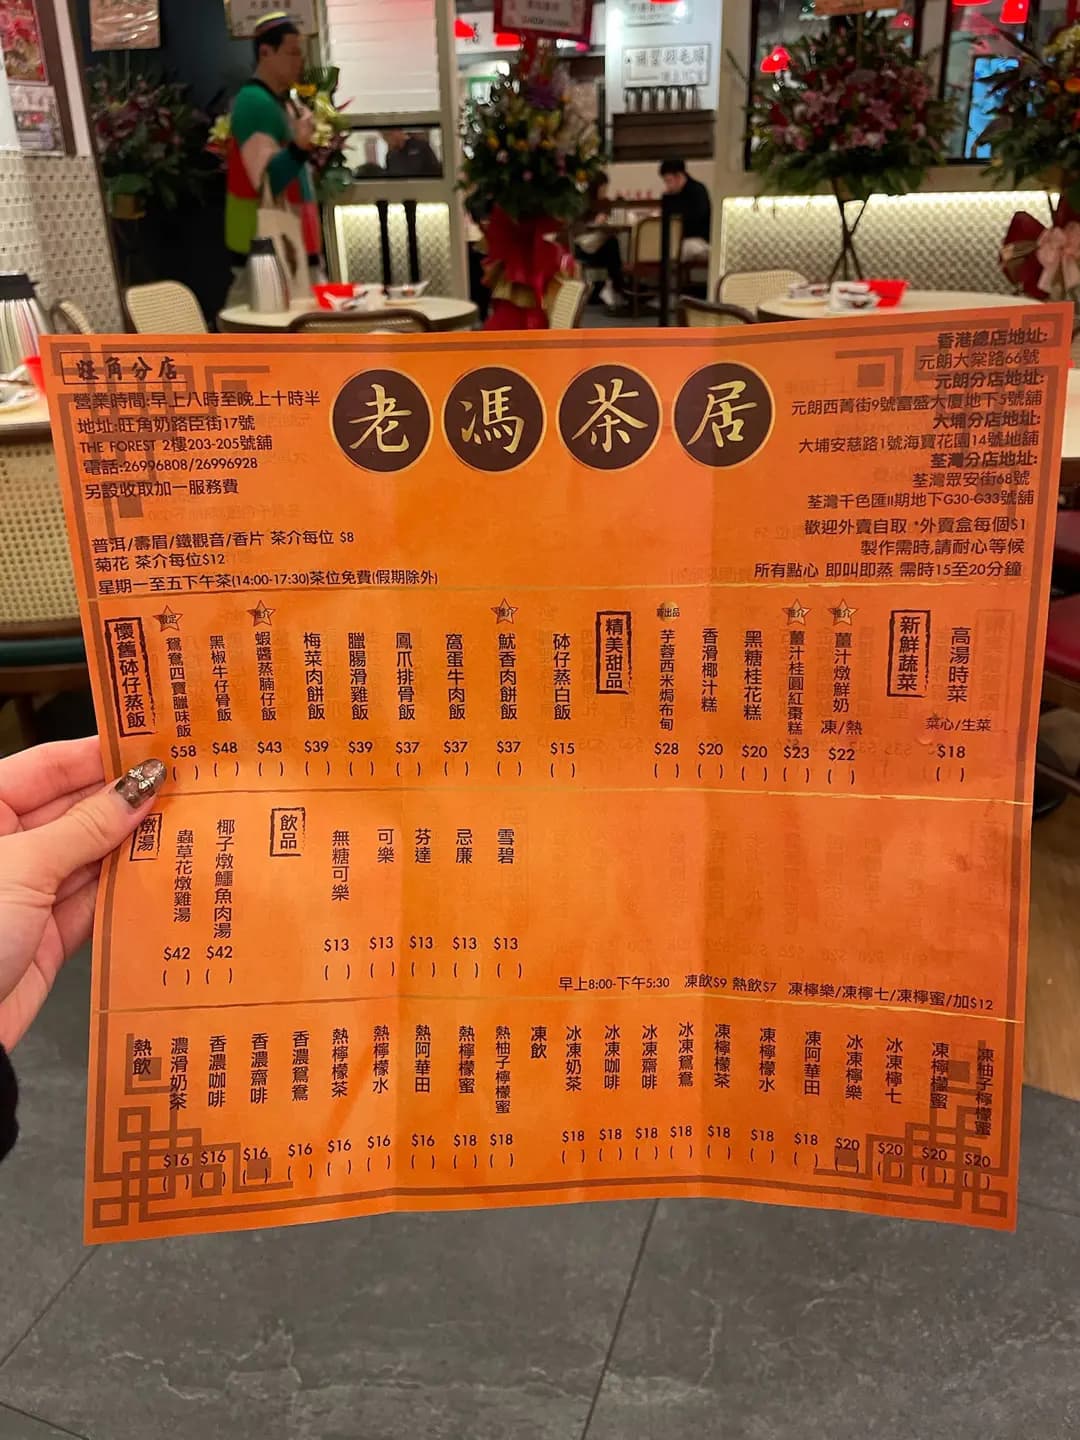 旺角分店
營業時間:早上八時至晚上十時半
地址:旺角奶路臣街17號
THE FOREST 2樓203-205號舖
電話:26996808/26996928
另設收取加一服務費
老馮茶居
香港總店地址:
元朗大棠路66號
元朗分店地址:
元朗西菁街9號富盛大廈地下5號舖
大埔分店地址:
大埔安慈路1號海寶花園14號地舖
荃灣分店地址:
荃灣眾安街68號
荃灣千色匯II期地下G30-G33號舖
普洱/壽眉/鐵觀音/香片 茶介每位 $8
菊花 茶介每位$12
星期一至五下午茶(14:00-17:30)茶位免費(假期除外)
歡迎外賣自取 *外賣盒每個$1
製作需時,請耐心等候
所有點心 即叫即蒸 需時15至20分鐘
懷舊砵仔蒸飯
鴛鴦四寶臘味飯 $58 ( )
黑椒牛仔骨飯 $48 ( )
推介
蝦醬蒸腩仔飯 $43 ( )
梅菜肉餅飯 $39 ( )
臘腸滑雞飯 $39 ( )
鳳爪排骨飯 $37 ( )
窩蛋牛肉飯 $37 ( )
推介
魷香肉餅飯 $37 ( )
砵仔蒸白飯 $15 ( )
精美甜品
新出品
芋蓉西米焗布甸 $28 ( )
香滑椰汁糕 $20 ( )
黑糖桂花糕 $20 ( )
推介
薑汁桂圓紅棗糕 $23 ( )
推介
薑汁燉鮮奶 凍/熱 $22 ( )
新鮮蔬菜
高湯時菜 菜心/生菜 $18 ( )
燉湯
蟲草花燉雞湯 $42 ( )
椰子燉鱷魚肉湯 $42 ( )
飲品
無糖可樂 $13 ( )
可樂 $13 ( )
芬達 $13 ( )
忌廉 $13 ( )
雪碧 $13 ( )
早上8:00-下午5:30 凍飲$9 熱飲$7 凍檸樂/凍檸七/凍檸蜜/加$12
熱飲
濃滑奶茶 $16 ( )
香濃咖啡 $16 ( )
香濃齋啡 $16 ( )
香濃鴛鴦 $16 ( )
熱檸檬茶 $16 ( )
熱檸檬水 $16 ( )
熱阿華田 $16 ( )
熱檸檬蜜 $18 ( )
熱柚子檸檬蜜 $18 ( )
凍飲
冰凍奶茶 $18 ( )
冰凍咖啡 $18 ( )
冰凍齋啡 $18 ( )
冰凍鴛鴦 $18 ( )
凍檸檬茶 $18 ( )
凍檸檬水 $18 ( )
凍阿華田 $18 ( )
冰凍檸樂 $20 ( )
冰凍檸七 $20 ( )
凍檸檬蜜 $20 ( )
凍柚子檸檬蜜 $20 ( )